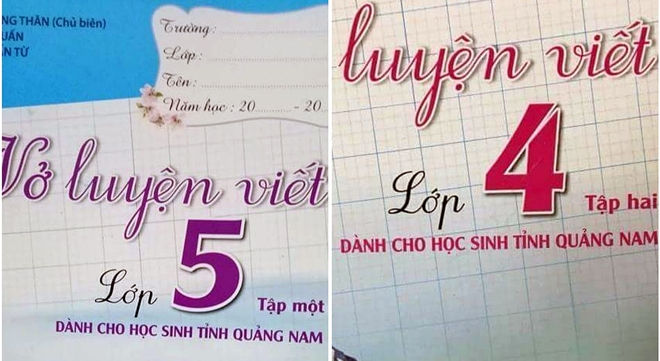 NG THÂN (Chủ biên)
UẤN
N TỪ
Trường:
Lớp:
Tên:
Năm học: 20 - 20
Vở luyện viết
Lớp 5 Tập một
DÀNH CHO HỌC SINH TỈNH QUẢNG NAM
luyện viết
Lớp 4 Tập hai
DÀNH CHO HỌC SINH TỈNH QUẢNG NAM